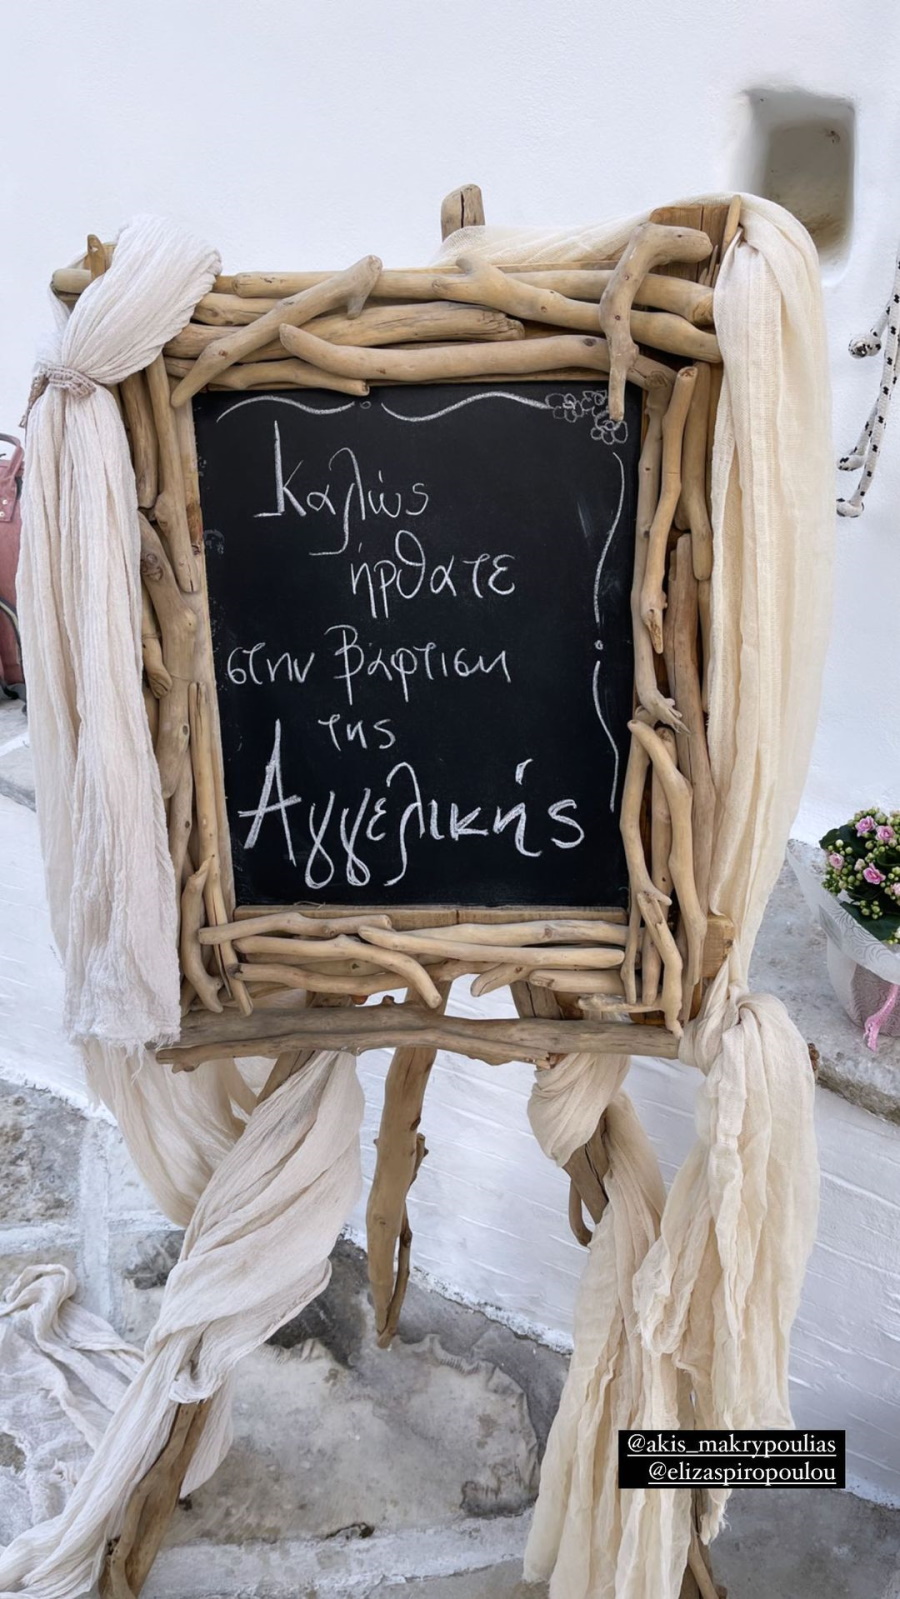 Καλώς
ήρθατε
στην Βάφτιση
της
Αγγελικής
@akis_makrypoulias
@elizaspiropoulou